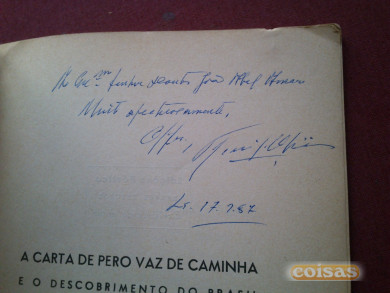 Ao Ex.mo Senhor João Abel
Muito afectuosamente,
Off.,
Lx. 17.1.87
A CARTA DE PERO VAZ DE CAMINHA
E O DESCOBRIMENTO DO BRASIL
coisas